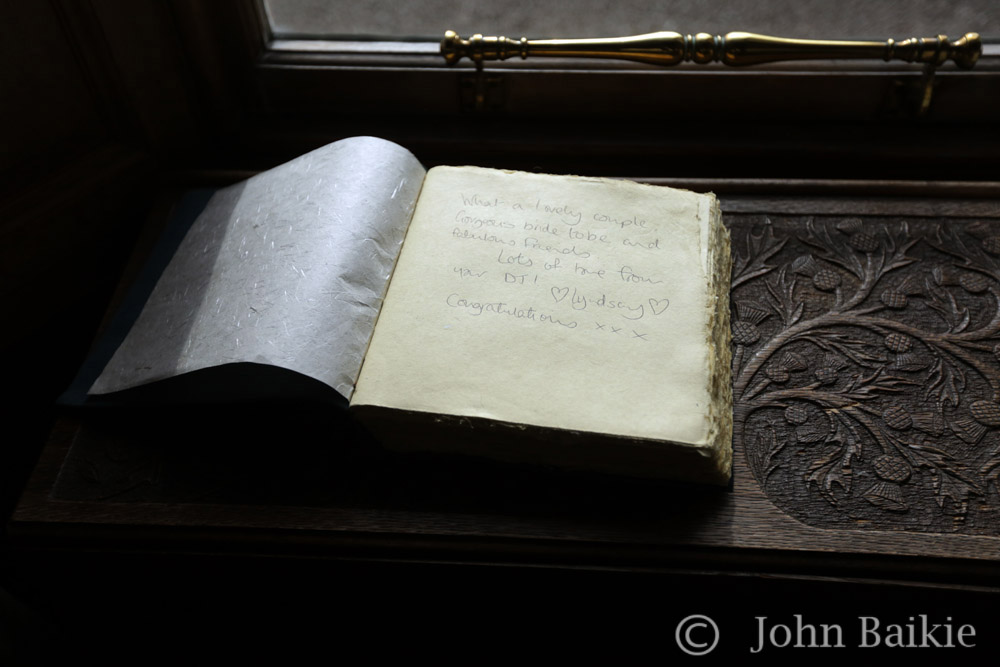 What a lovely couple
Gorgeous bride to be and
fabulous friends
Lots of love from
your DJ!
♡ Lyndsay ♡
Congratulations x x x
© John Baikie